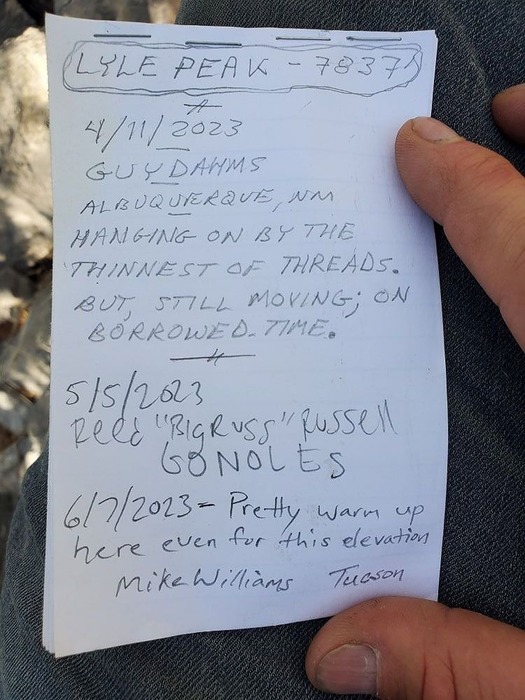 LYLE PEAK - 7837'
4/11/2023
GUY DAHMS
ALBUQUERQUE, NM
HANGING ON BY THE
THINNEST OF THREADS.
BUT, STILL MOVING; ON
BORROWED TIME.
5/5/2023
Reed "BigRuss" Russell
GO NOLES
6/7/2023 - Pretty warm up
here even for this elevation
Mike Williams Tucson